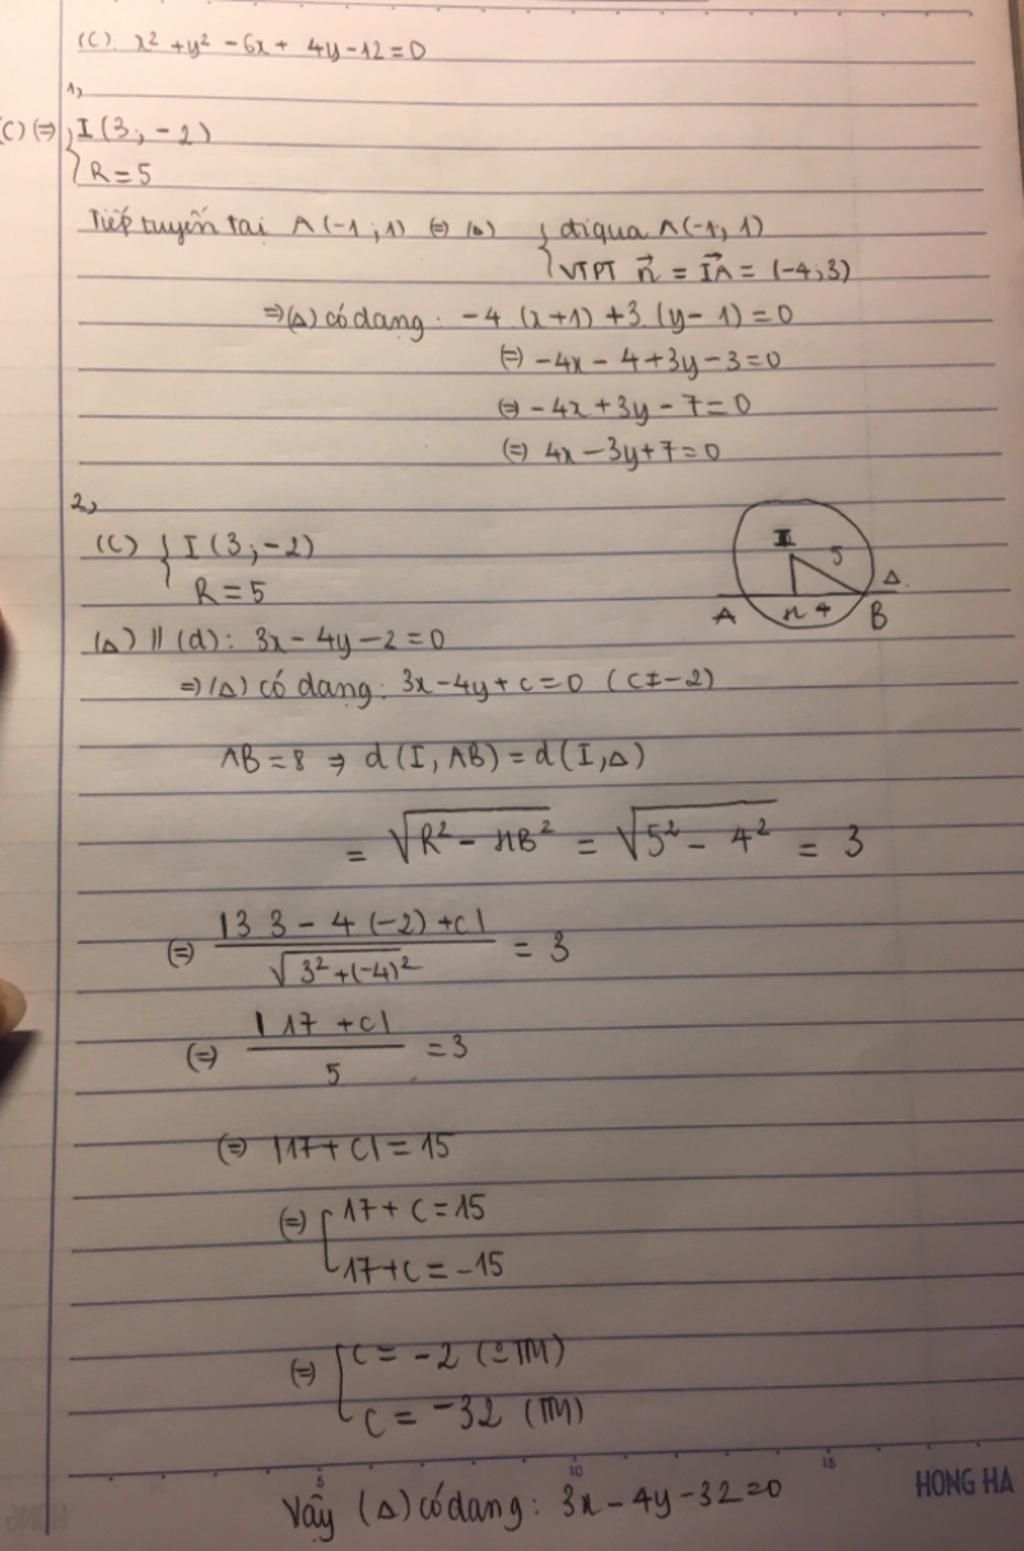 (C): x² + y² - 6x + 4y - 12 = 0
1,
(C) (=) { I (3; -2)
R = 5
Tiếp tuyến tại A (-1; 1) (=) (Δ) { đi qua A (-1; 1)
VTPT n⃗ = IA⃗ = (-4; 3)
=> (Δ) có dạng: -4 (x+1) + 3 (y-1) = 0
(=) -4x - 4 + 3y - 3 = 0
(=) -4x + 3y - 7 = 0
(=) 4x - 3y + 7 = 0
2,
(C) { I (3; -2)
R = 5
I 5 Δ
A H 4 B
(Δ) // (d): 3x - 4y - 2 = 0
=> (Δ) có dạng: 3x - 4y + c = 0 (c ≠ -2)
AB = 8 => d (I, AB) = d (I, Δ)
= √(R² - HB²) = √(5² - 4²) = 3
(=) |3 3 - 4 (-2) + c| / √(3² + (-4)²) = 3
(=) |17 + c| / 5 = 3
(=) |17 + c| = 15
(=) [ 17 + c = 15
17 + c = -15
(=) [ c = -2 (o TM)
c = -32 (TM)
5 10 15
HONG HA
Vậy (Δ) có dạng: 3x - 4y - 32 = 0